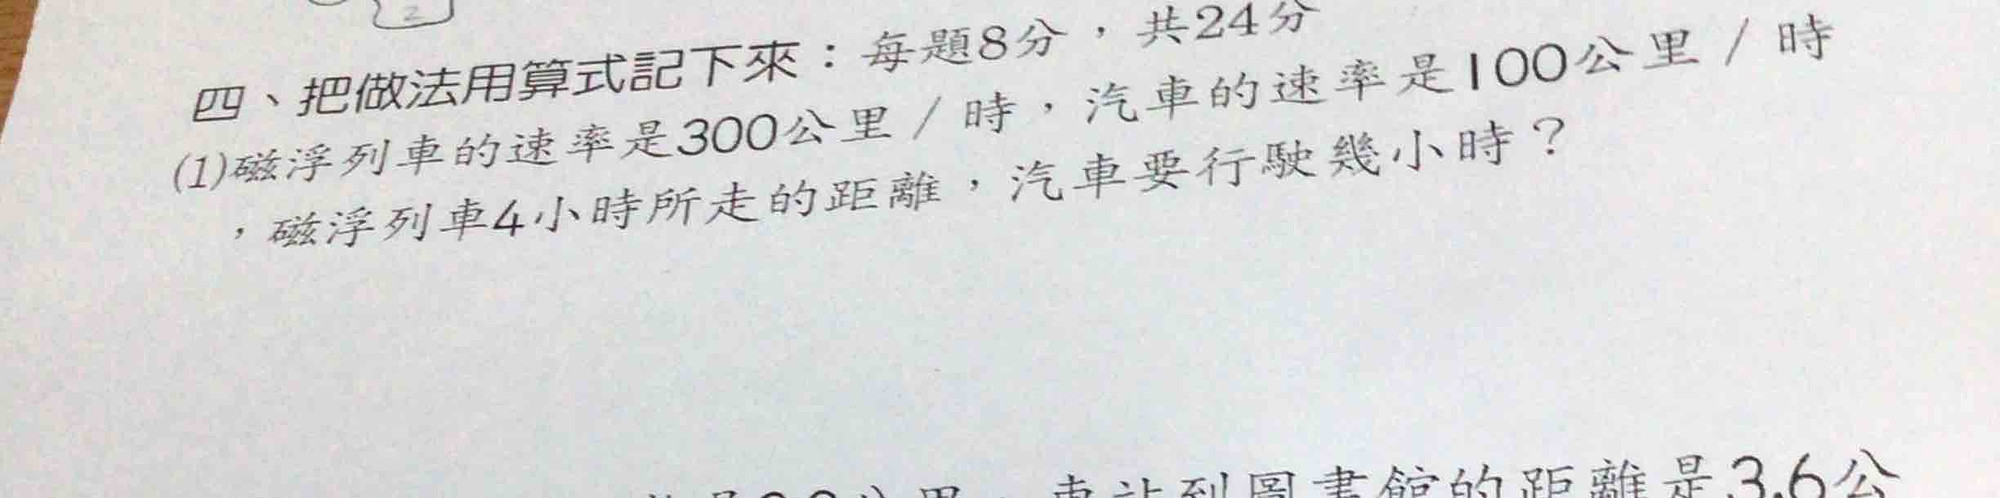 2
四、把做法用算式記下來：每題8分，共24分
(1)磁浮列車的速率是300公里／時，汽車的速率是100公里／時
，磁浮列車4小時所走的距離，汽車要行駛幾小時？
公里，車站到圖書館的距離是3.6公